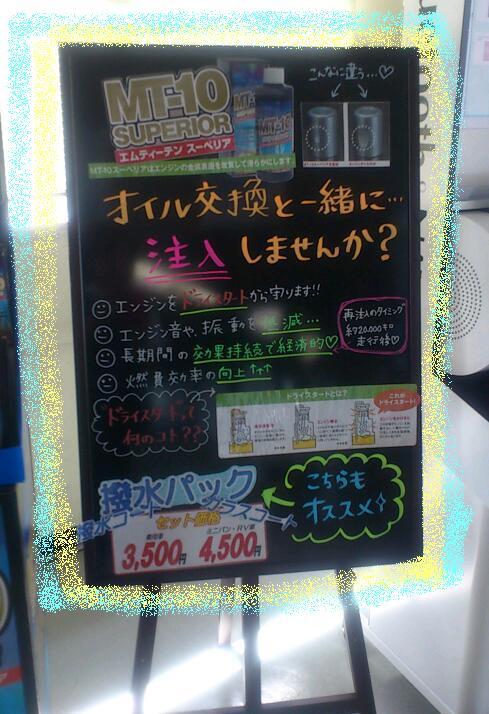 こんなに違う…♡
MT-10
SUPERIOR
エムティーテン スーペリア
MT-10スーペリアはエンジンの金属表面を改質して滑らかにします
オイル交換と一緒に…
注入しませんか?
エンジンをドライスタートから守ります!!
エンジン音や、振動を低減…
長期間の効果持続で経済的♡
燃費効率の向上↑↑↑
再注入のタイミング
約20,000キロ
走行後♡
"ドライスタート"って
何のコト??
ドライスタートとは?
これが
ドライスタート!
撥水パック
撥水コート
ガラスコート
セット価格
ミニバン・RV車
3,500円
4,500円
こちらも
オススメ